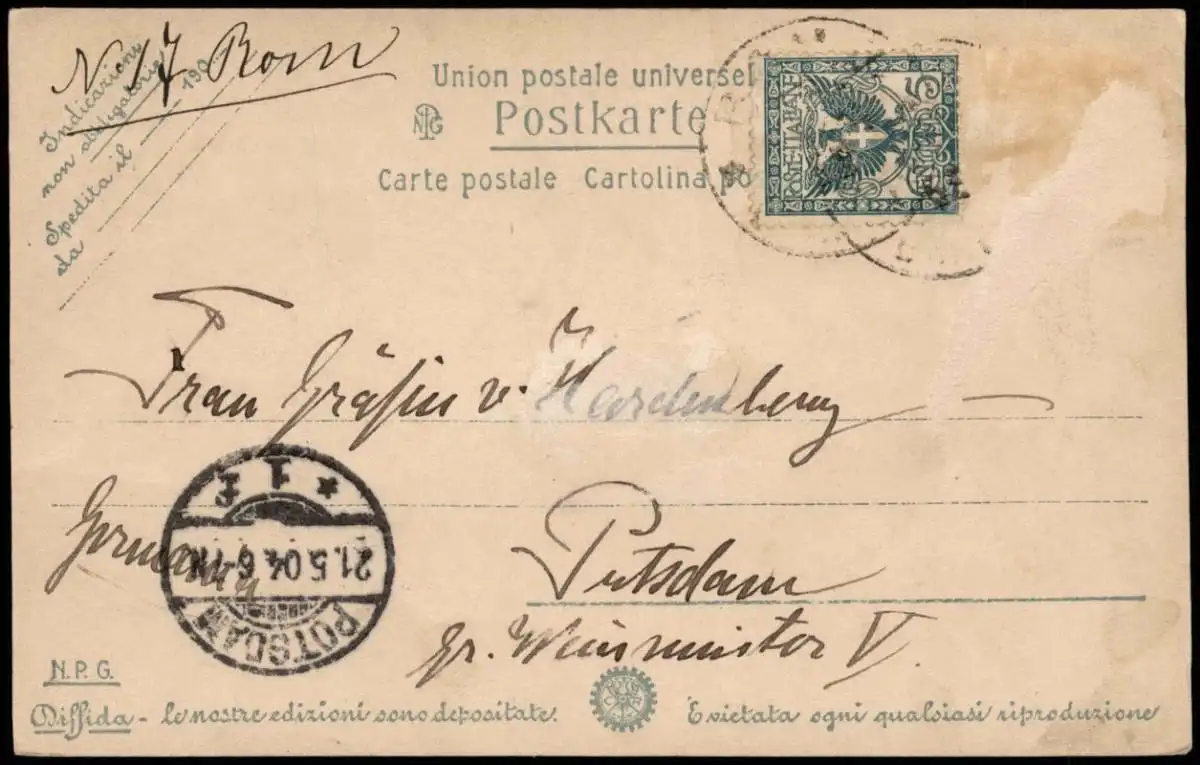 N. 17 Rom
Indicazione
non obbligatorie
Spedita il 190
da
Union postale universel
NPG Postkarte
Carte postale Cartolina po
POSTE ITALIANE
5
Frau Gräfin v. Hardenberg
Germany
Potsdam
Gr. Weinmeister V.
POTSDAM
21.5.04.6-7N
* 1 f
N.P.G.
Diffida - le nostre edizioni sono depositate. È vietata ogni qualsiasi riproduzione